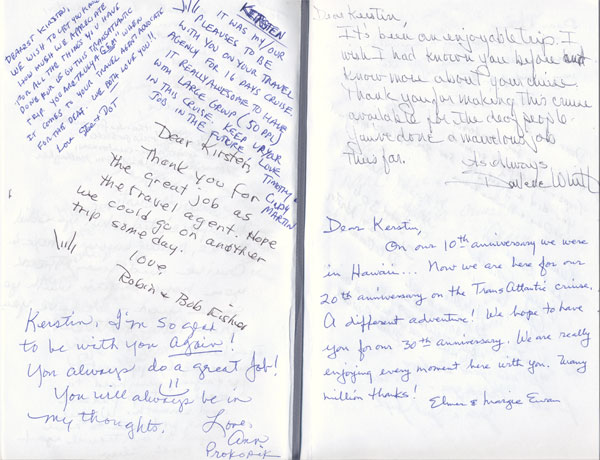 DEAREST KIRSTEN,
WE WISH TO LET YOU KNOW
HOW MUCH WE APPRECIATE
ALL THE THINGS YOU HAVE
DONE FOR US ON THIS TRANSATLANTIC
TRIP. YOU ARE TRULY A GEM WHEN
IT COMES TO YOUR TRAVEL AGENT
FOR THE DEAF. WE BOTH LOVE YOU!!
LOU DOT
KERSTEN
IT WAS MY/OUR
PLEASURES TO BE
WITH YOU ON YOUR TRAVEL
AGENCY FOR 16 DAYS CRUISE.
IT REALLY AWESOME TO HAVE
WITH LARGE GRUP (50 PPL)
IN THIS CRUISE. KEEP UP YOUR
JOB IN THE FUTURE LOVE
TIMOTHY
CINDY
MARTIN
Dear Kirsten,
Thank you for
the great job as
the travel agent. Hope
we could go on another
trip some day.
love,
Robin & Bob
Kerstin, I'm so glad
to be with you Again!
You always do a great job!
You will always be in
my thoughts.
Love,
Ann
Prokopik
Dear Kerstin,
It's been an enjoyable trip. I
wish I had known you before
know more about your cruises.
Thank you for making this cruise
available for the deaf people.
You've done a marvelous job
thus far.
As always
Darlene
Dear Kerstin,
On our 10th anniversary we were
in Hawaii... Now we are here for our
20th anniversary on the TransAtlantic cruise.
A different adventure! We hope to have
you for our 30th anniversary. We are really
enjoying every moment here with you. Many
million thanks!
Elmer & Margie Ewan